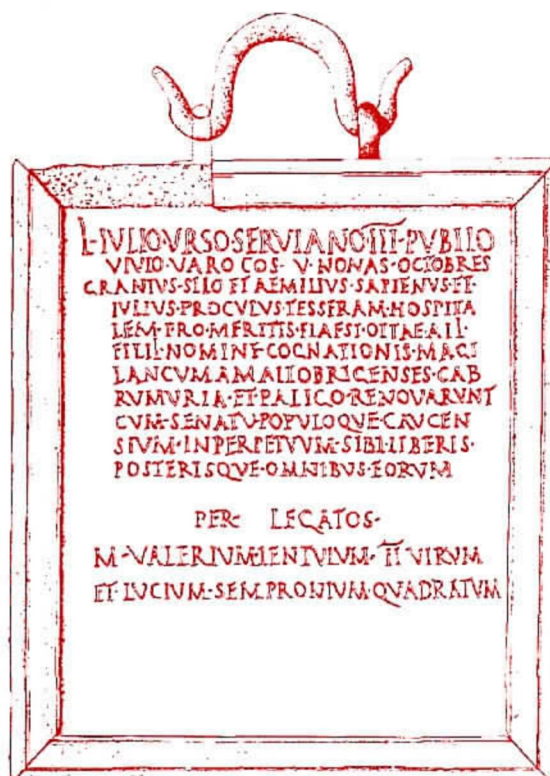 L·IVLIO·VRSO·SERVIANO·III·PVBLIO
VIVIO·VARO COS· V·NONAS·OCTOBRES
GRANIVS·SILO ET AEMILIVS·SAPIENVS·ET·
IVLIVS·PROCVLVS·TESSERAM·HOSPITA
LEM·PRO·MERITIS·
FILII·NOMINE·COGNATIONIS·MAGI
LANCVM·AMALLOBRIGENSES·CAB
RVMVRIA·ET·PALICO·RENOVARVNT
CVM·SENATV·POPVLOQVE·CAVCEN
SIVM·INPERPETVVM·SIBI·LIBERIS·
POSTERISQVE·OMNIBVS·EORVM
PER· LEGATOS·
M·VALERIVM·LENTVLVM·II VIRVM
ET·LVCIVM·SEMPRONIVM·QVADRATVM